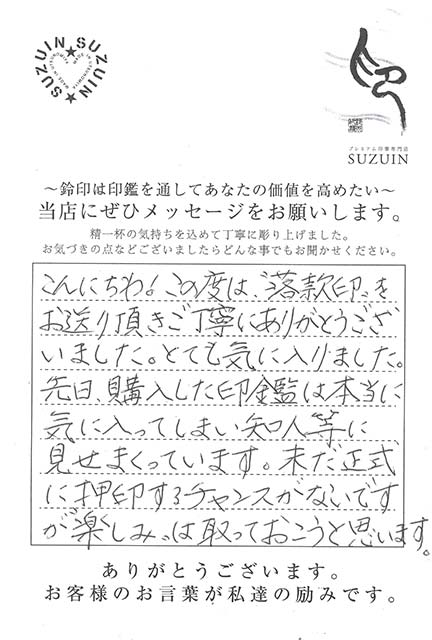 SUZUIN★SUZUIN★
プレミアム印章専門店
SUZUIN
～鈴印は印鑑を通してあなたの価値を高めたい～
当店にぜひメッセージをお願いします。
精一杯の気持ちを込めて丁寧に彫り上げました。
お気づきの点などございましたらどんな事でもお聞かせください。
こんにちわ！この度は、落款印、を
お送り頂きご丁寧にありがとうござ
いました。とても気に入りました。
先日、購入した印鑑は本当に
気に入ってしまい知人等に
見せまくっています。未だ正式
に押印するチャンスがないです
が楽しみは取っておこうと思います。
ありがとうございます。
お客様のお言葉が私達の励みです。